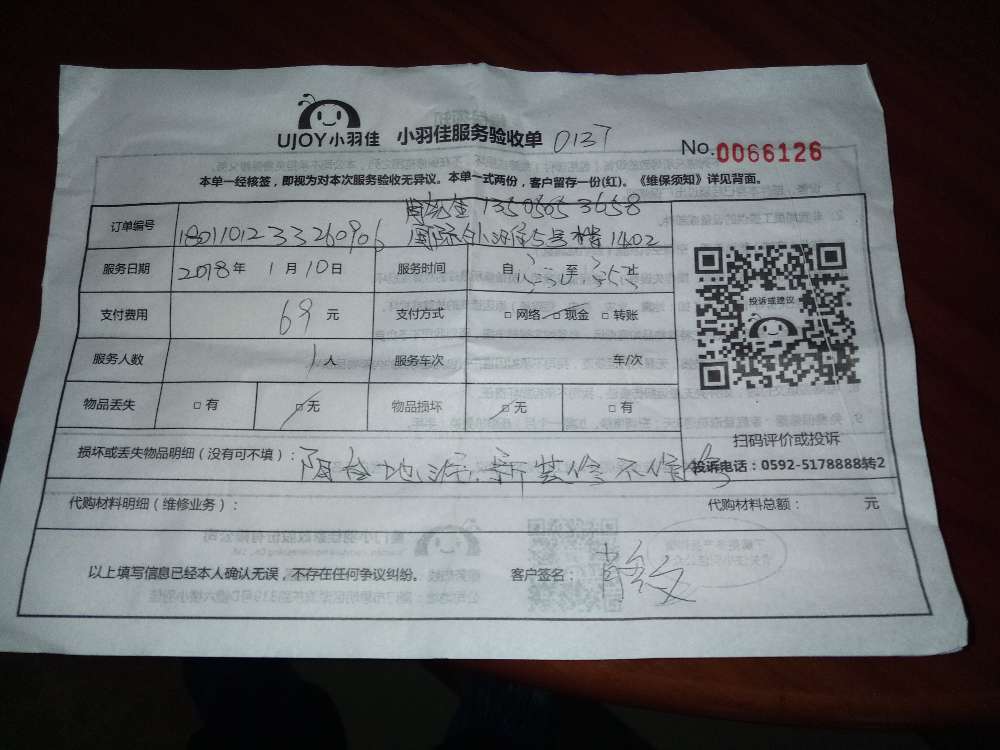 UJOY小羽佳 小羽佳服务验收单 0137
No.0066126
本单一经核签，即视为对本次服务验收无异议。本单一式两份，客户留存一份(红)。《维保须知》详见背面。
13505053658
订单编号 1801101233260906 国际外滩5号楼1402
服务日期 2018年 1月10日 服务时间 自 至
支付费用 69 元 支付方式 □网络 □现金 □转账
服务人数 1人 服务车次 车/次
物品丢失 □有 □无 物品损坏 □无 □有
投诉或建议
扫码评价或投诉
投诉电话：0592-5178888转2
损坏或丢失物品明细（没有可不填）： 阳台地漏，新装修不保修
代购材料明细（维修业务）： 代购材料总额： 元
以上填写信息已经本人确认无误，不存在任何争议纠纷。 客户签名：